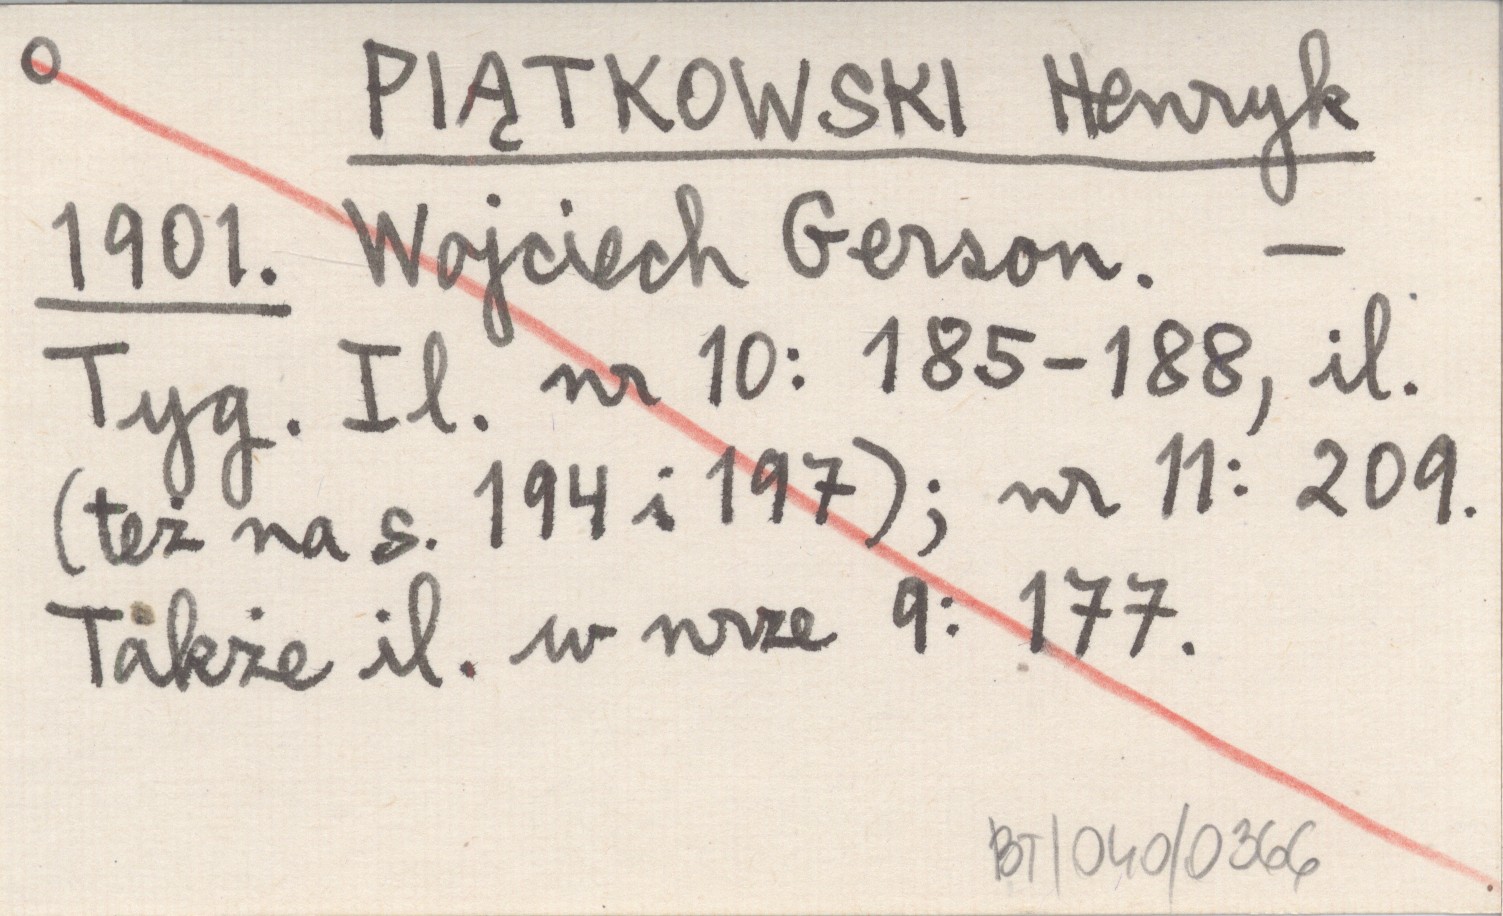 O PIĄTKOWSKI Henryk
1901. Wojciech Gerson. —
Tyg. Il. nr 10: 185-188, il.
(też na s. 194 i 197); nr 11: 209.
Także il. w nrze 9: 177.
BT/040/0366